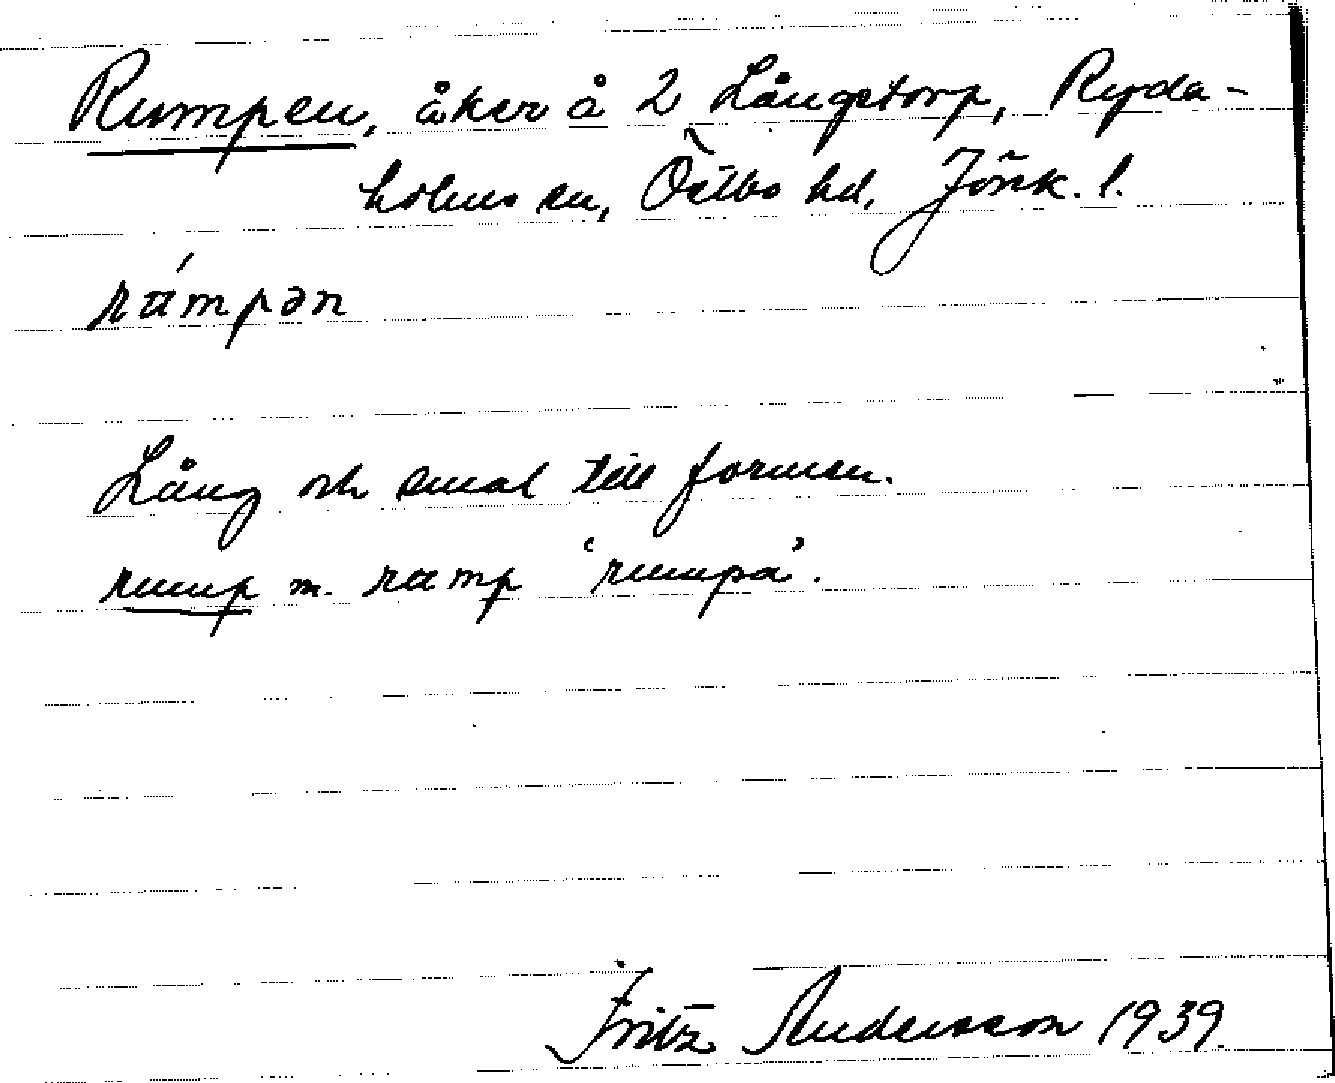 Rumpen, åker å 2 Långstorp, Ryda-
holms sn, Östbo hd, Jönk. l.
rúmpən
Lång och smal till formen.
rump m. rump 'rumpa'.
Fritz Andersson 1939